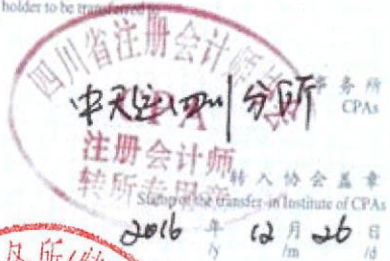 holder to be transferred to
四川省注册会计师协会
中天运四川分所 事务所
CPAs
CPA
注册会计师
转所专用章
转入协会盖章
Stamp of the transfer-in Institute of CPAs
2016 年 12 月 26 日
/y /m /d